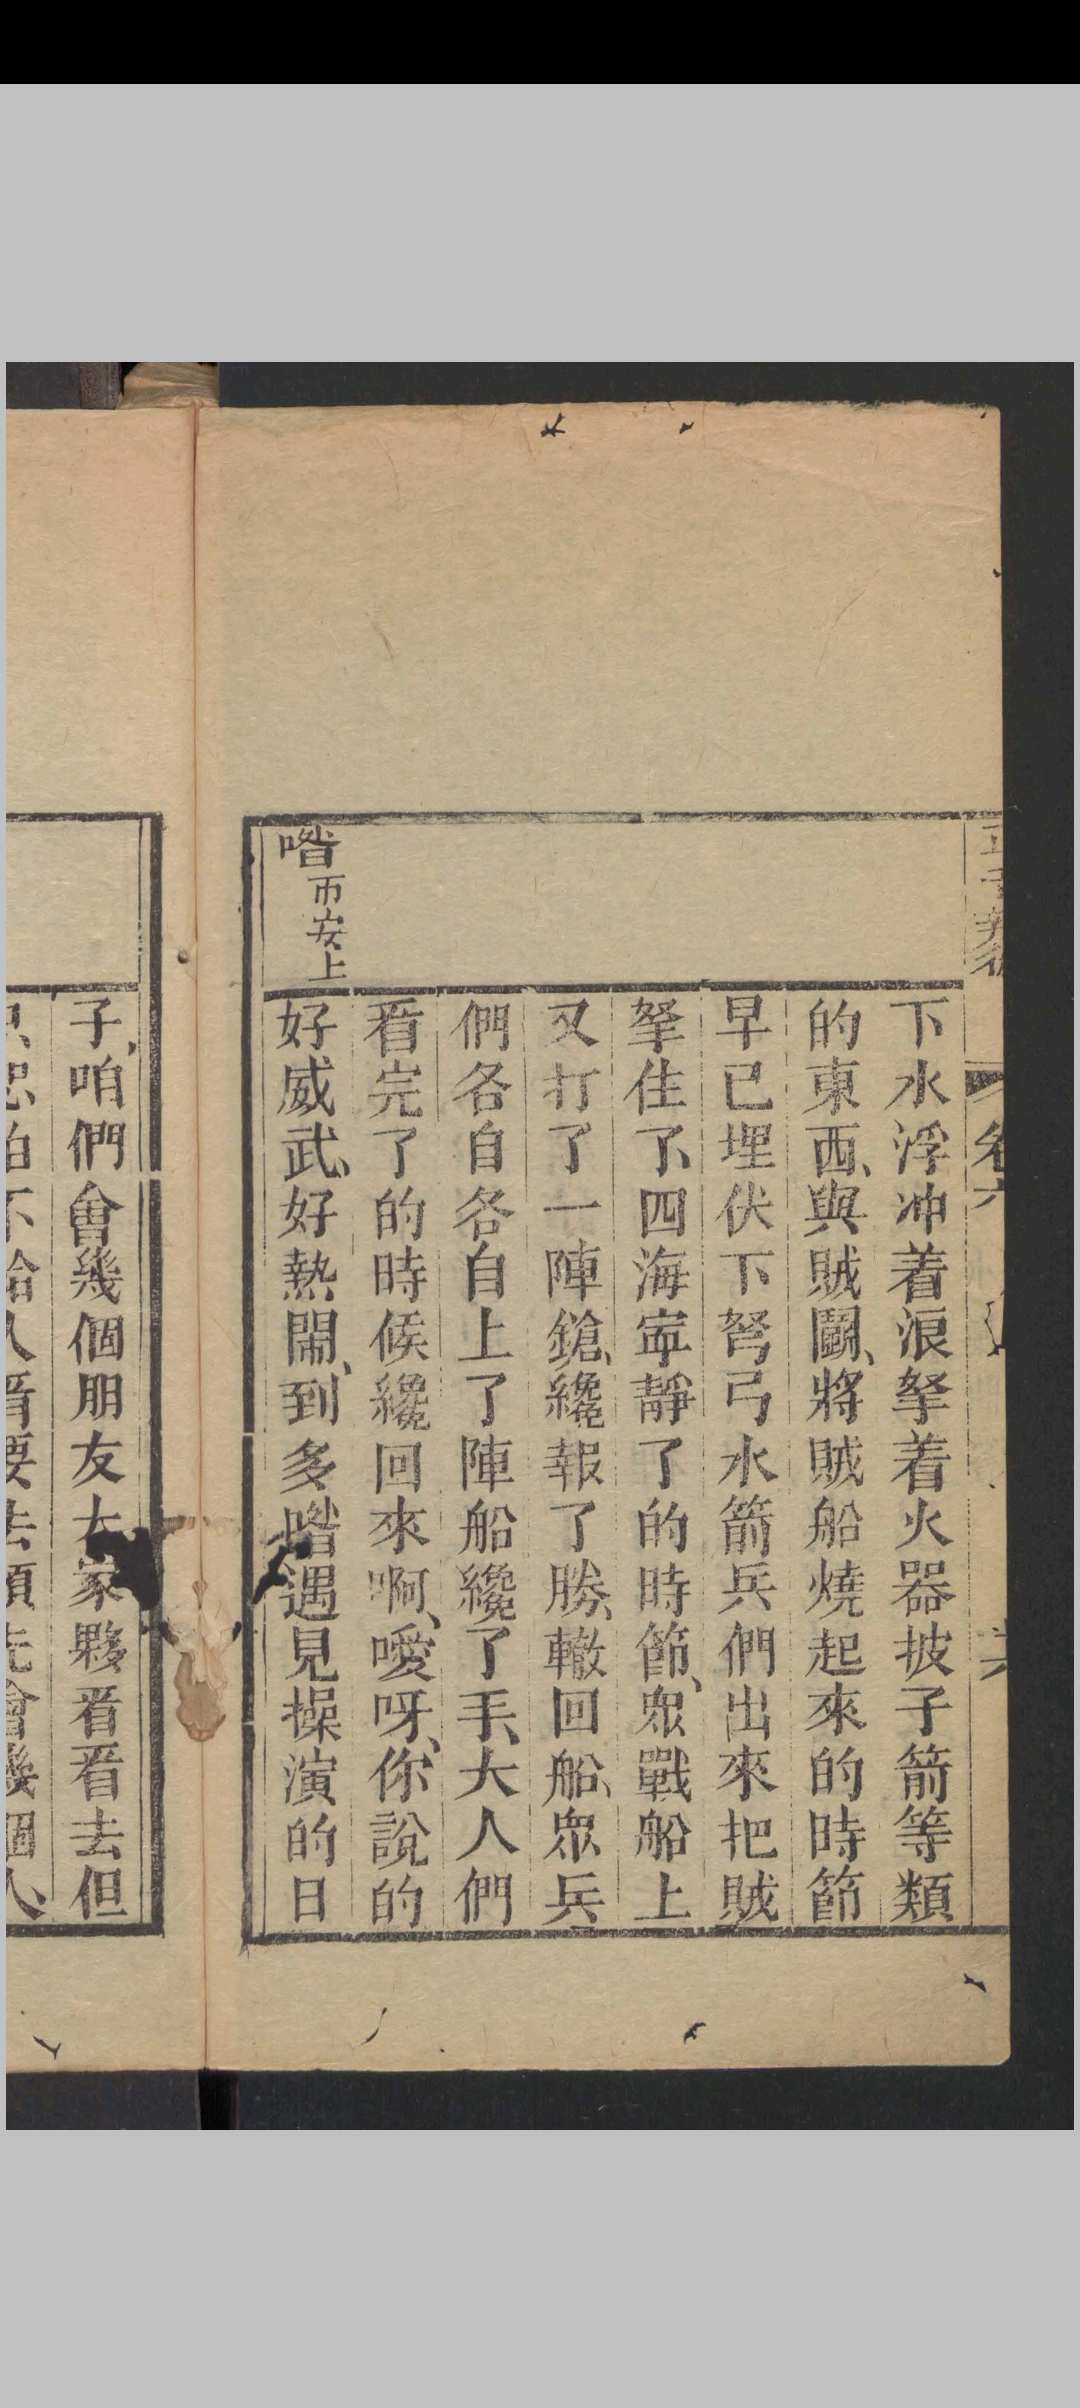 卷六
下水浮冲着浪拏着火器披子箭等類
的東西、與賊鬭、將賊船燒起來的時節
早已埋伏下弩弓水箭兵們出來把賊
拏住了、四海寧靜了的時節、眾戰船上
又打了一陣鎗、纔報了勝、轍回船、眾兵
們各自各自上了陣船纔了手、大人們
看完了的時候纔回來啊、噯呀、你說的
喒 帀安上
好威武、好熱鬧、到多喒遇見操演的日
子、咱們會幾個朋友大家夥看看去但
不給人看要去須先會幾個人、